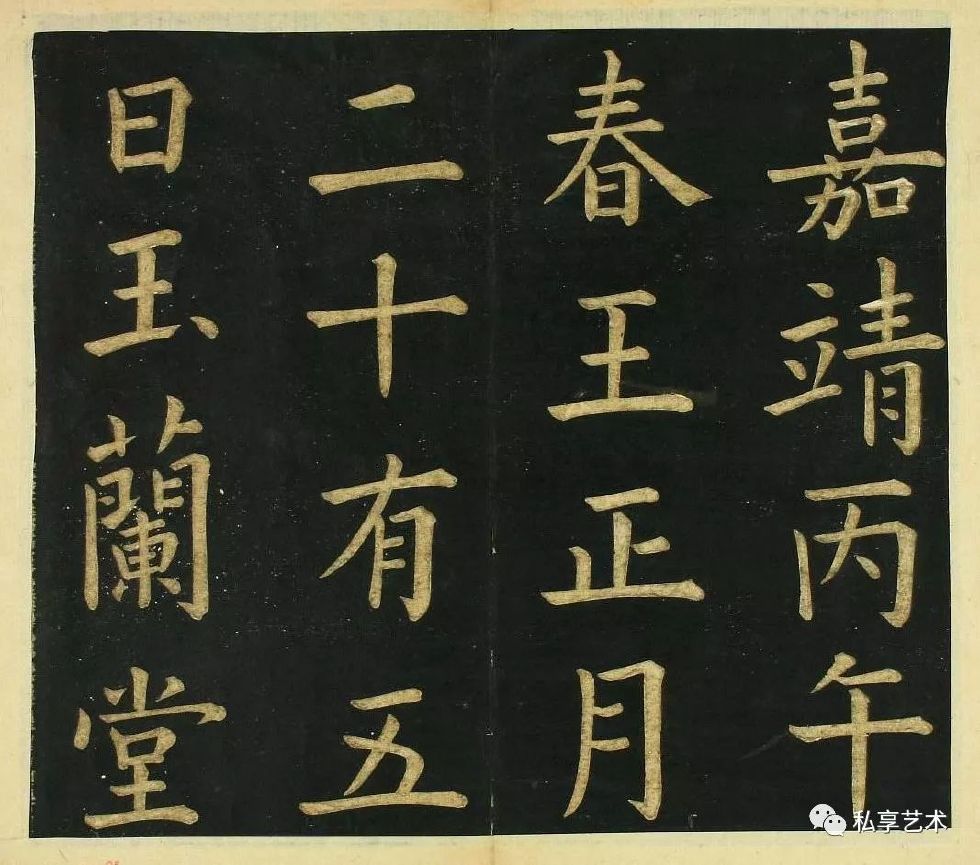 嘉靖丙午
春王正月
二十有五
日玉蘭堂
私享艺术